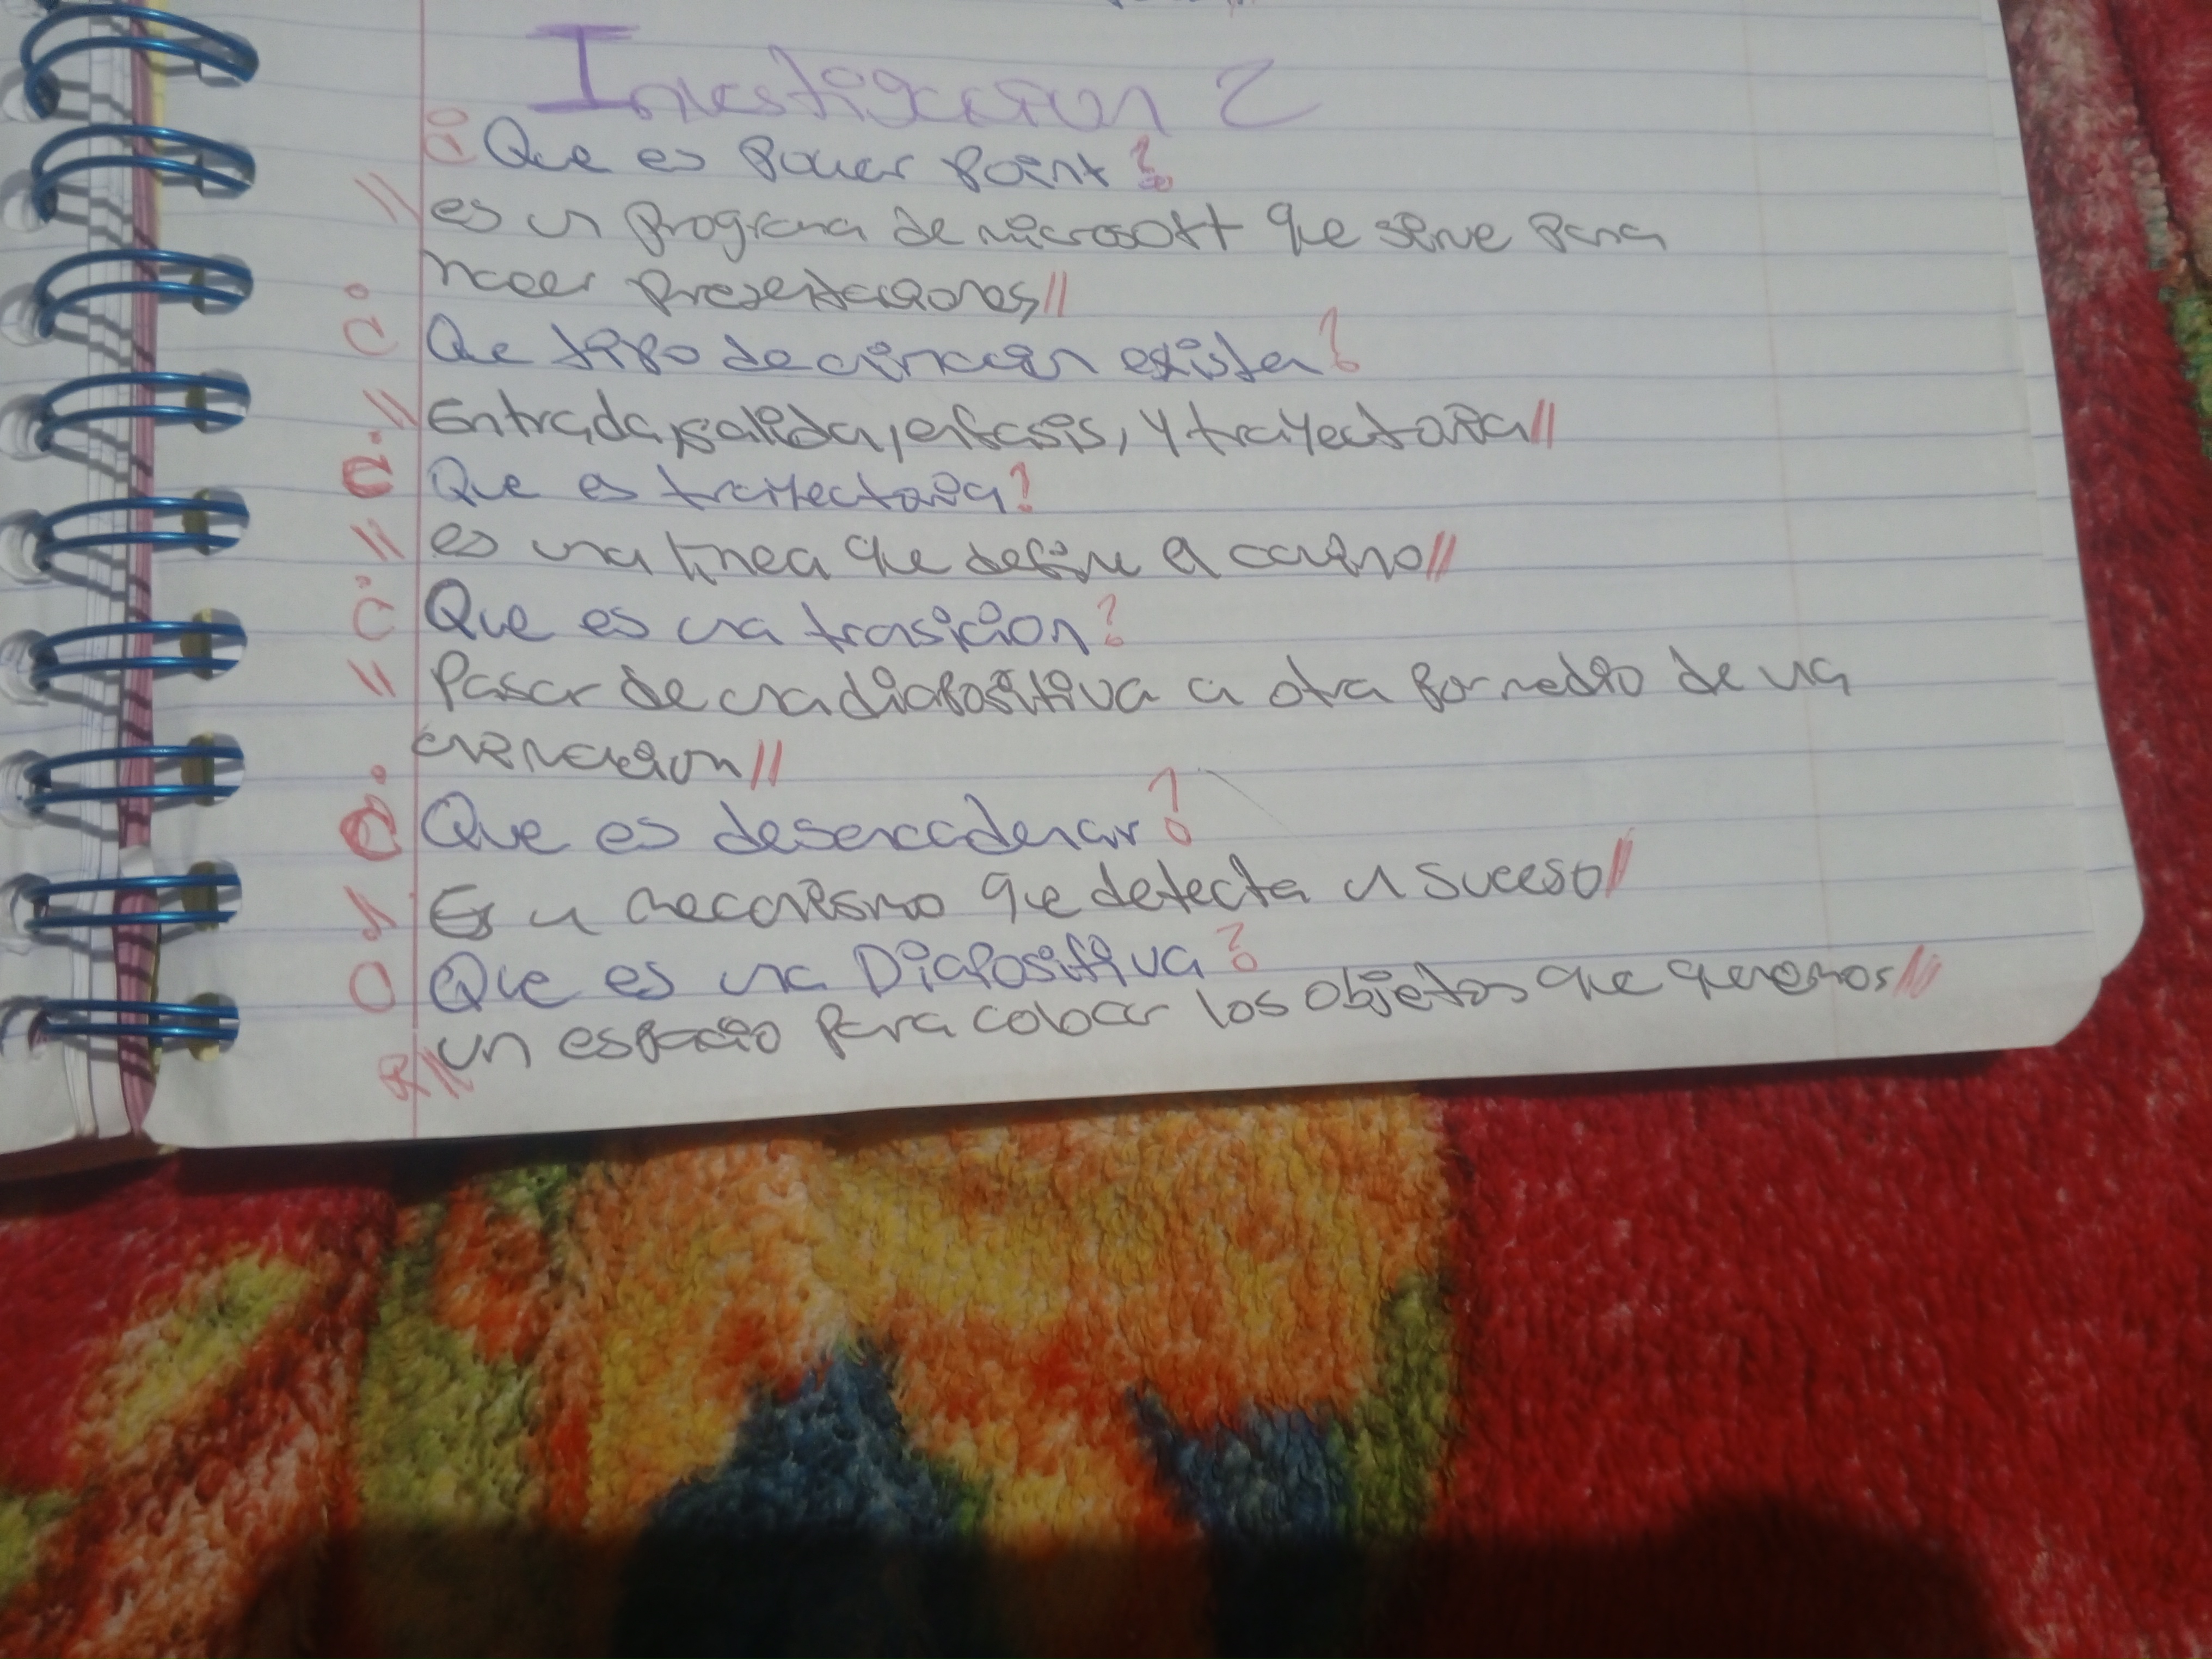 Investigacion 2
¿Que es Power Point?
// es un programa de microsoft que serve para
hacer presentaciones//
¿Que tipo de animacion existen?
// Entrada, salida, enfasis, y trayectoria//
¿Que es trayectoria?
// es una linea que define el camino//
¿Que es una trasicion?
// Pasar de una diapositiva a otra por medio de una
animacion//
¿Que es desencadenar?
// Es un mecanismo que detecta un suceso//
¿Que es una Diapositiva?
R// un espacio para colocar los objetos que queremos//